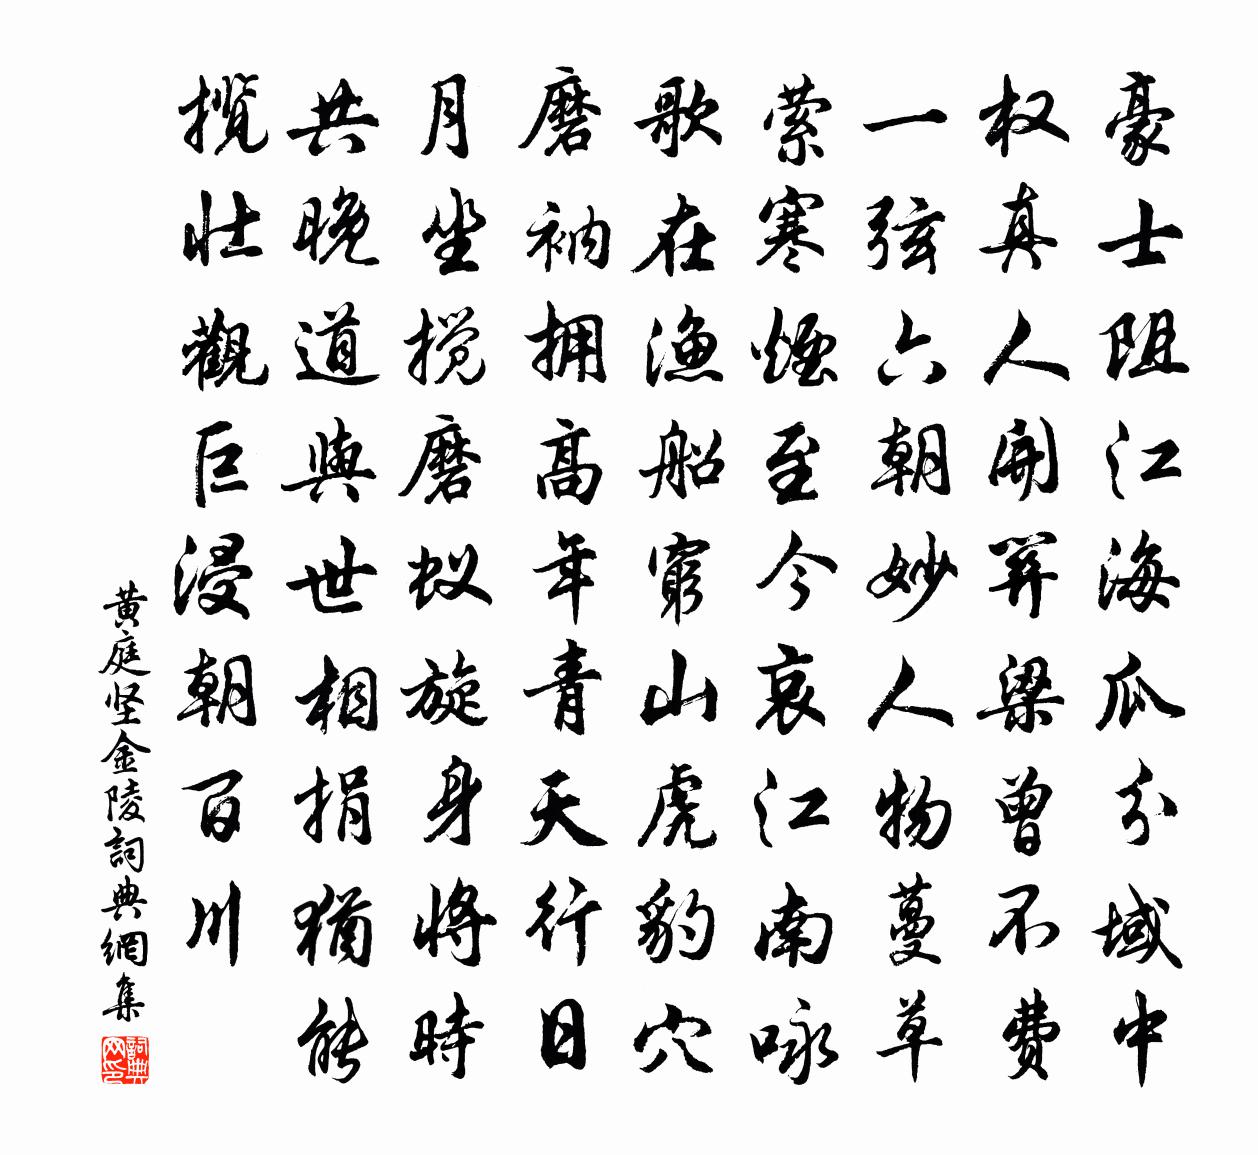 豪士阻江海瓜分域中
权真人开筓梁曾不费
一弦六朝妙人物蔓草
萦寒烟至今哀江南咏
歌在渔船穷山虎豹穴
磨衲拥高年青天行日
月坐搅磨蚁旋身将時
共晚道與世相捐犹能
揽壮觀巨浸朝百川
黄庭坚金陵詞典網集
詞典网印